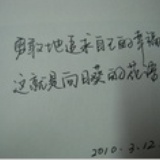 勇敢地追求自己的幸福
这就是向日葵的花语
2010.3.12